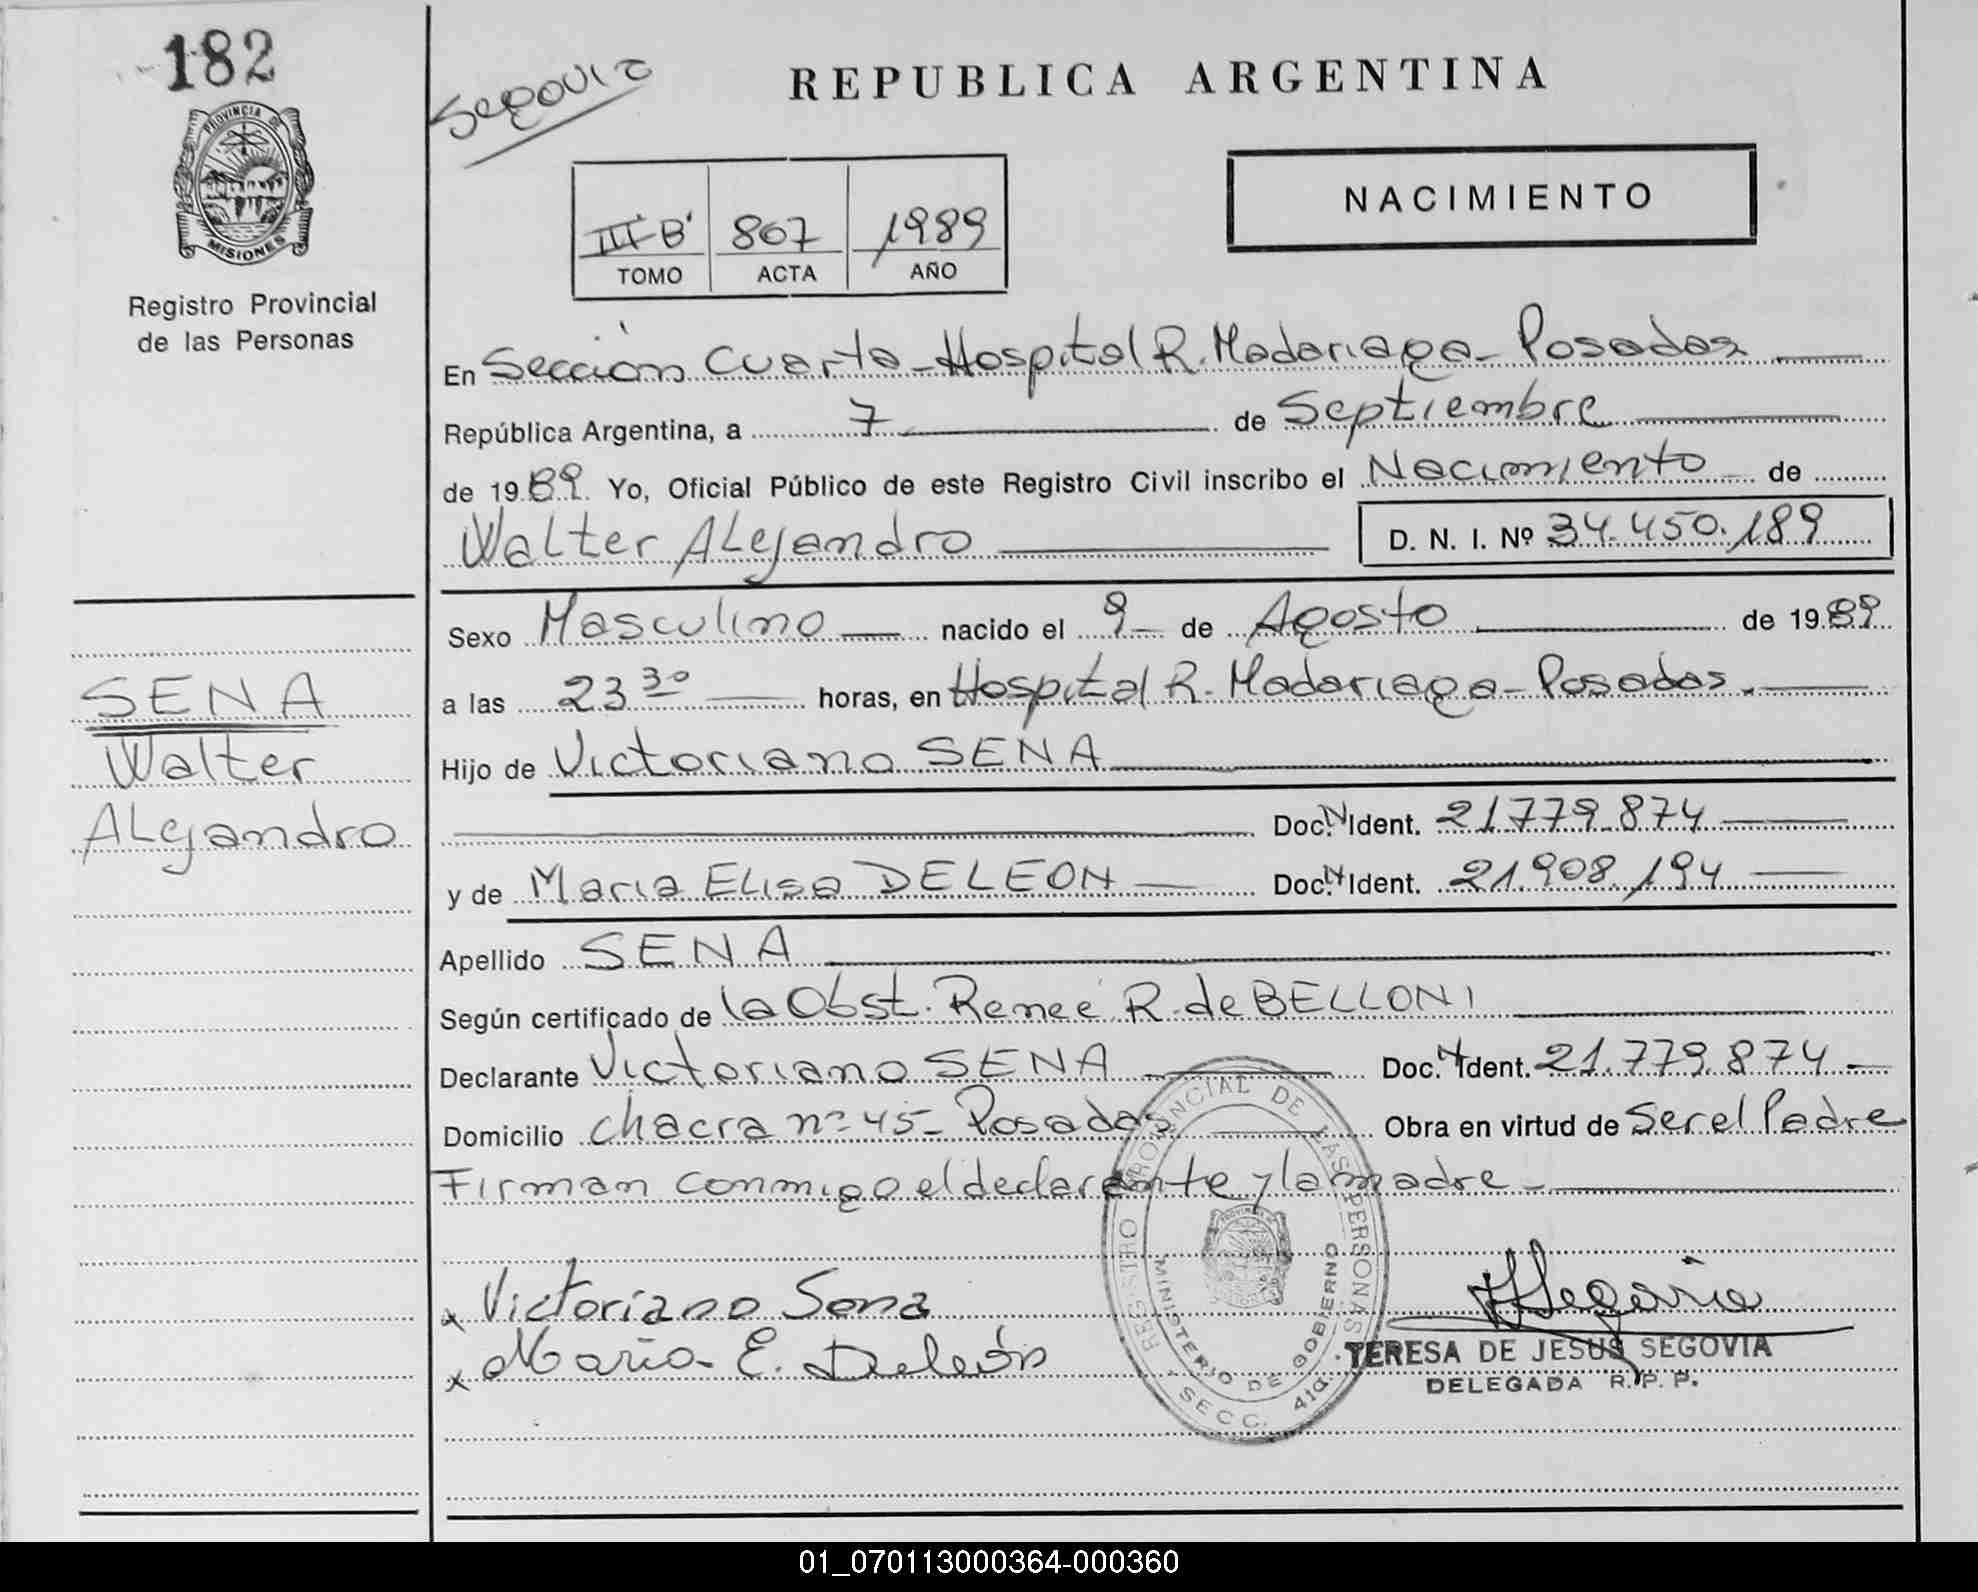 182
PROVINCIA DE
MISIONES
Registro Provincial
de las Personas
SENA
Walter
Alejandro
Segovia
REPUBLICA ARGENTINA
III "B" 807 1989
TOMO ACTA AÑO
NACIMIENTO
En Sección Cuarta - Hospital R. Madariaga - Posadas.
República Argentina, a 7 de Septiembre
de 1989. Yo, Oficial Público de este Registro Civil inscribo el Nacimiento de
Walter Alejandro D. N. I. Nº 34.450.189
Sexo Masculino nacido el 9 de Agosto de 1989
a las 23 30 horas, en Hospital R. Madariaga - Posadas.
Hijo de Victoriano SENA
Doc. N Ident. 21.779.874
y de Maria Elisa DELEON Doc. N Ident. 21.908.194
Apellido SENA
Según certificado de la Obst. Reneé R. de BELLONI
Declarante Victoriano SENA Doc. N Ident. 21.779.874
Domicilio Chacra nº 45 - Posadas Obra en virtud de Ser el Padre
Firman conmigo el declarante y la madre -
x Victoriano Sena
x Maria E. Deleón
REGISTRO PROVINCIAL DE LAS PERSONAS
MINISTERIO DE GOBIERNO
SECC. 4ta.
Segovia
TERESA DE JESUS SEGOVIA
DELEGADA R. P. P.
01_070113000364-000360